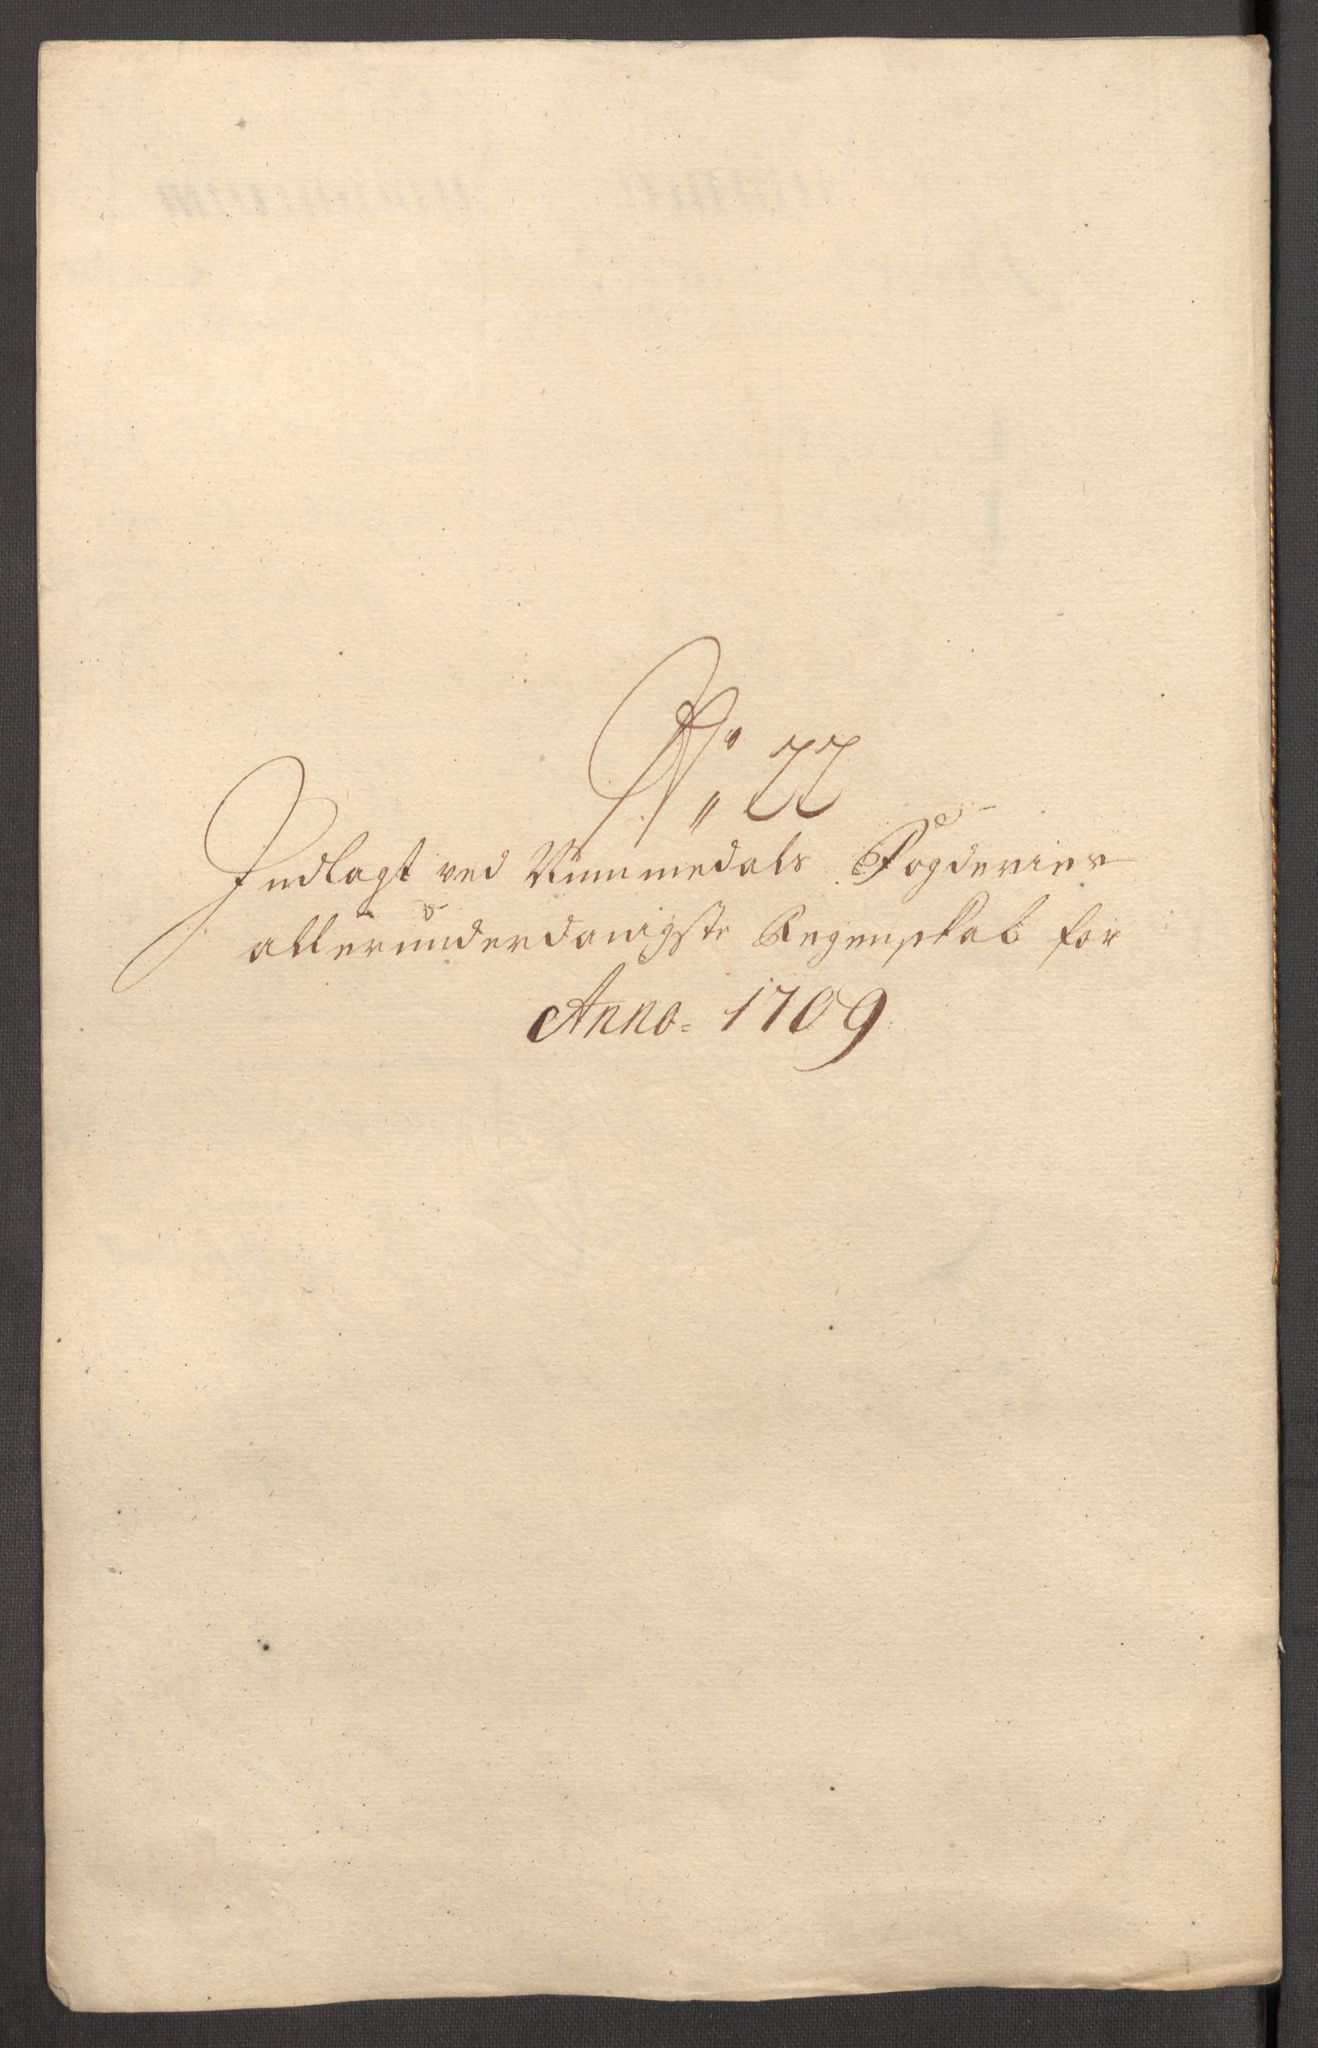 No: 22
Indlagt ved Nummedals Fogderies
allerunderdanigste Regenskab for
Anno. 1709